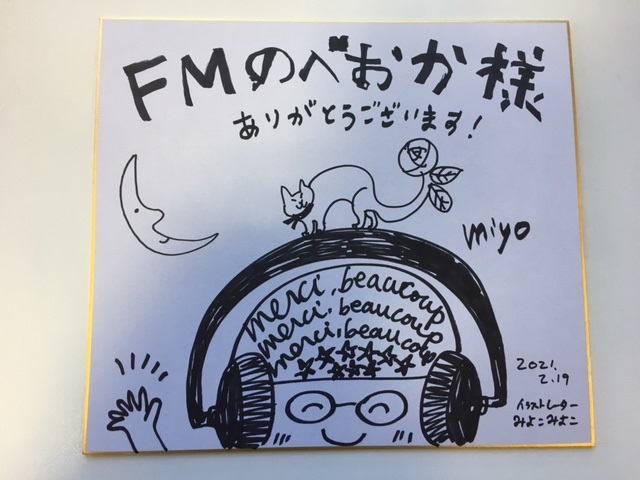 FMのべおか様
ありがとうございます!
miyo
merci, beaucoup
merci, beaucoup
merci, beaucoup
2021.
2.19
イラストレーター
みよこみよこ